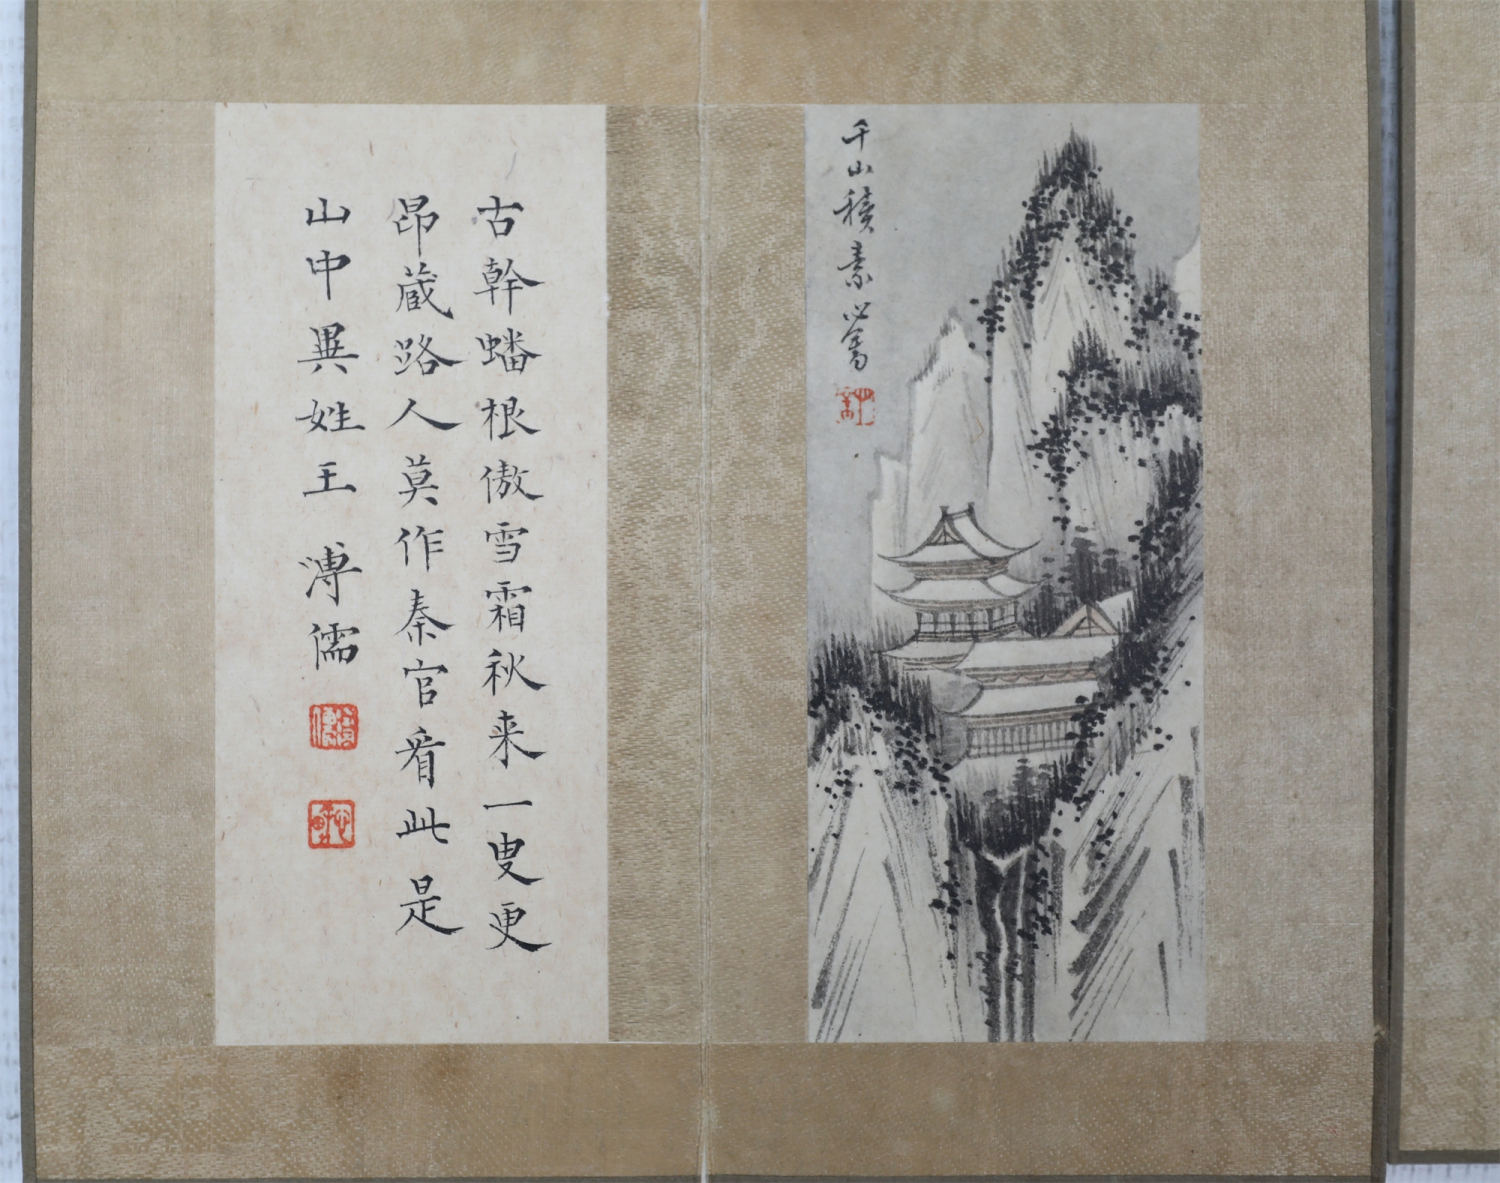 千山積素 心畬
古幹蟠根傲雪霜秋来一叟更
昂蔵路人莫作秦官看此是
山中異姓王 溥儒
溥儒